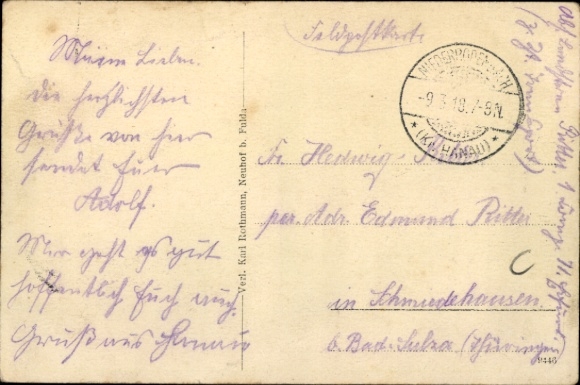 Meine Lieben.
die herzlichsten
Grüße von hier
sendet Euer
Adolf.
Mir geht es gut
hoffentlich Euch auch.
Gruß aus Hanau
Verl. Karl Rothmann, Neuhof b. Fulda
Feldpostkarte
NIEDERRODENBACH
-9.3.18. 7-8N.
* (KR. HANAU) *
Fr. Hedwig
per. Adr. Edmund Ritter
in Schmiedehausen.
b. Bad-Sulza (Thüringen)
9446
Ritter